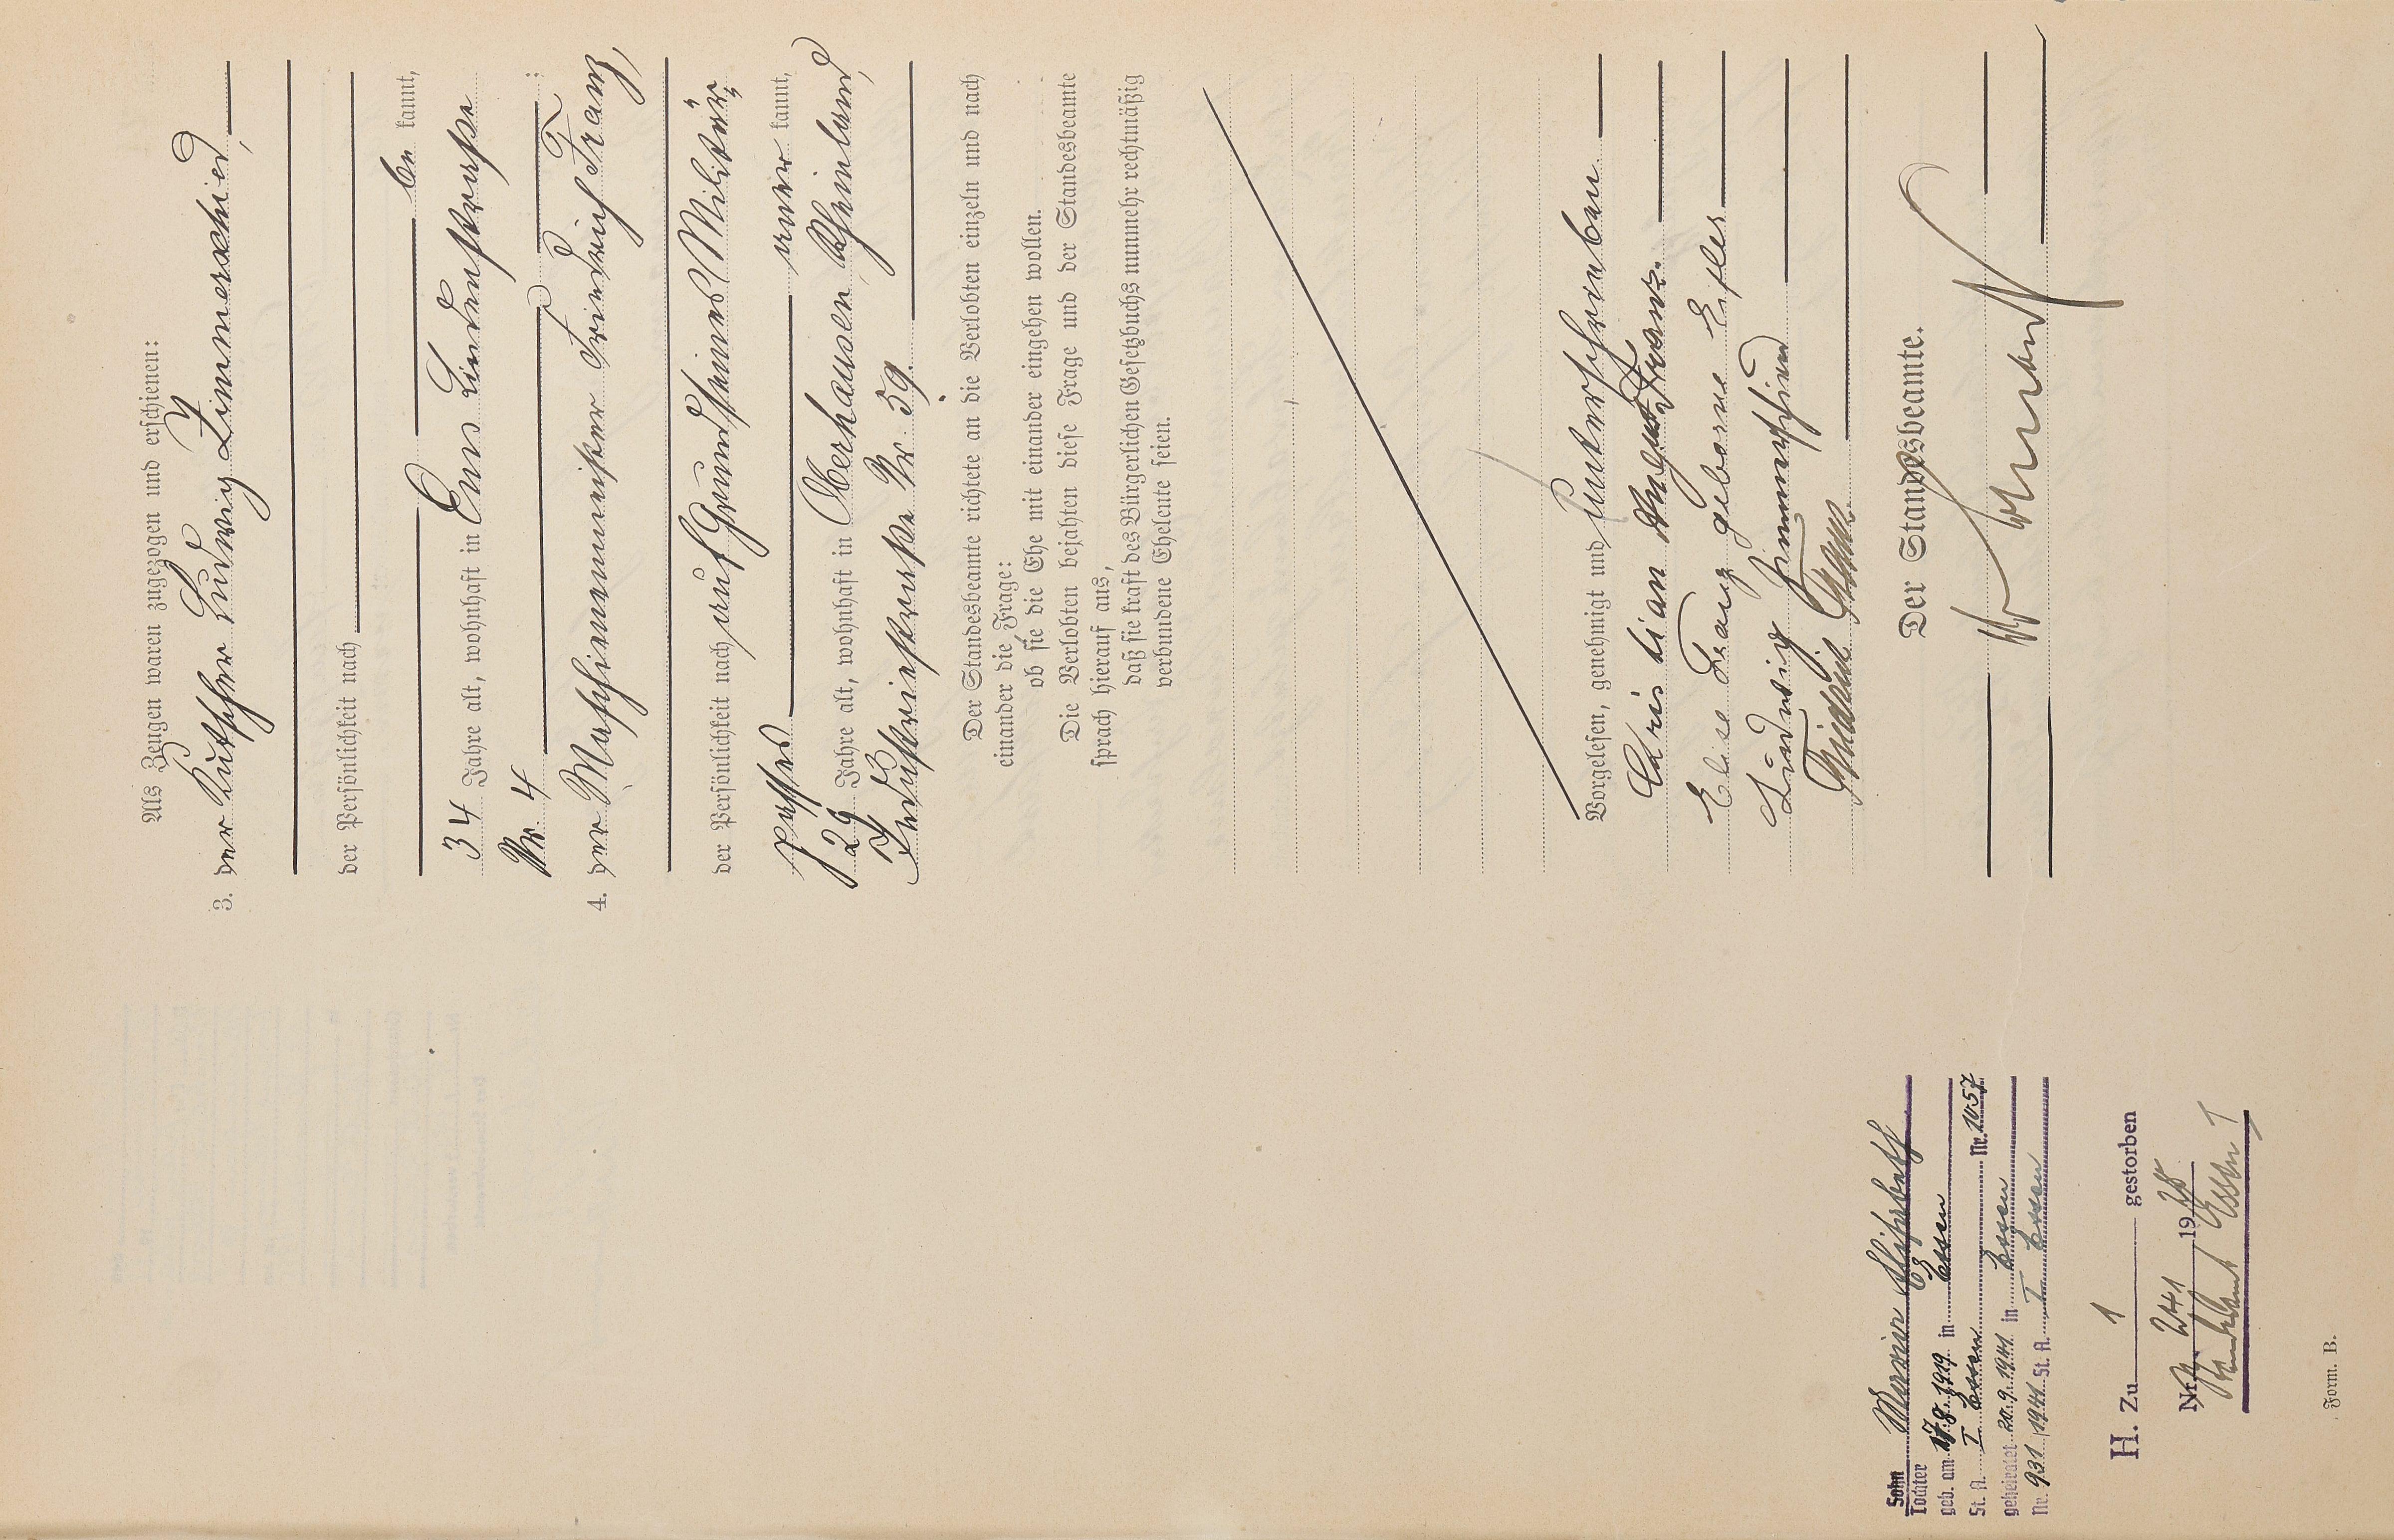 Als Zeugen waren zugezogen und erschienen:
3. der Kutscher Ludwig Zimmerschied,
der Persönlichkeit nach
be kannt,
34 Jahre alt, wohnhaft in Ems Lindenstrasse
Nr. 4
4. der Maschinenmeister Friedrich Franz,
der Persönlichkeit nach auf Grund seines Militär-
passes aner kannt,
29 Jahre alt, wohnhaft in Oberhausen Rheinland,
Industriestrasse Nr. 39.
Der Standesbeamte richtete an die Verlobten einzeln und nach
einander die Frage:
ob sie die Ehe mit einander eingehen wollen.
Die Verlobten bejahten diese Frage und der Standesbeamte
sprach hierauf aus,
daß sie kraft des Bürgerlichen Gesetzbuchs nunmehr rechtmäßig
verbundene Eheleute seien.
Vorgelesen, genehmigt und unterschrieben
Christian August Franz.
Elise Franz geborene Eifler
Ludwig Zimmerschied
Friedrich Franz.
Der Standesbeamte.
Sohn
Tochter Maria Elisabeth
geb. am 17.8.1919 in Essen
St. A. I Essen Nr. 1057
geheiratet 20.9.1941 in Essen
Nr. 931/1941 St. A. I Essen
H. Zu 1 gestorben
Nr. 241 1928
Standesamt Essen 1
Form. B.